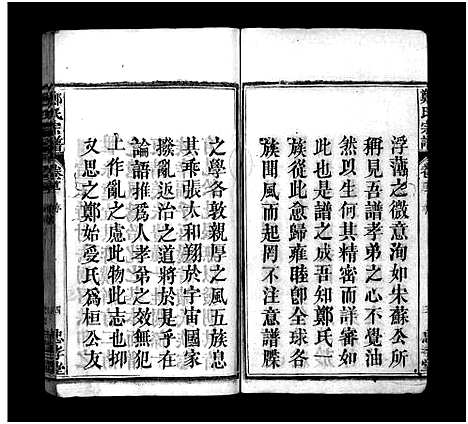 鄭氏宗譜
浮薄之微意洵如朱蘇公所
稱見吾譜孝弟之心不覺油
然以生何其精密而詳審如
此也是譜之成吾知鄭氏一
族從此愈歸雍睦卽全球各
族聞風而起罔不注意譜牒
之學各敦親厚之風五族息
其乖張太和翔於宇宙國家
撥亂返治之道將於是乎在
論語推爲人孝弟之效無犯
上作亂之慮此物此志也抑
又思之鄭始受氏爲桓公友
鄭氏宗譜